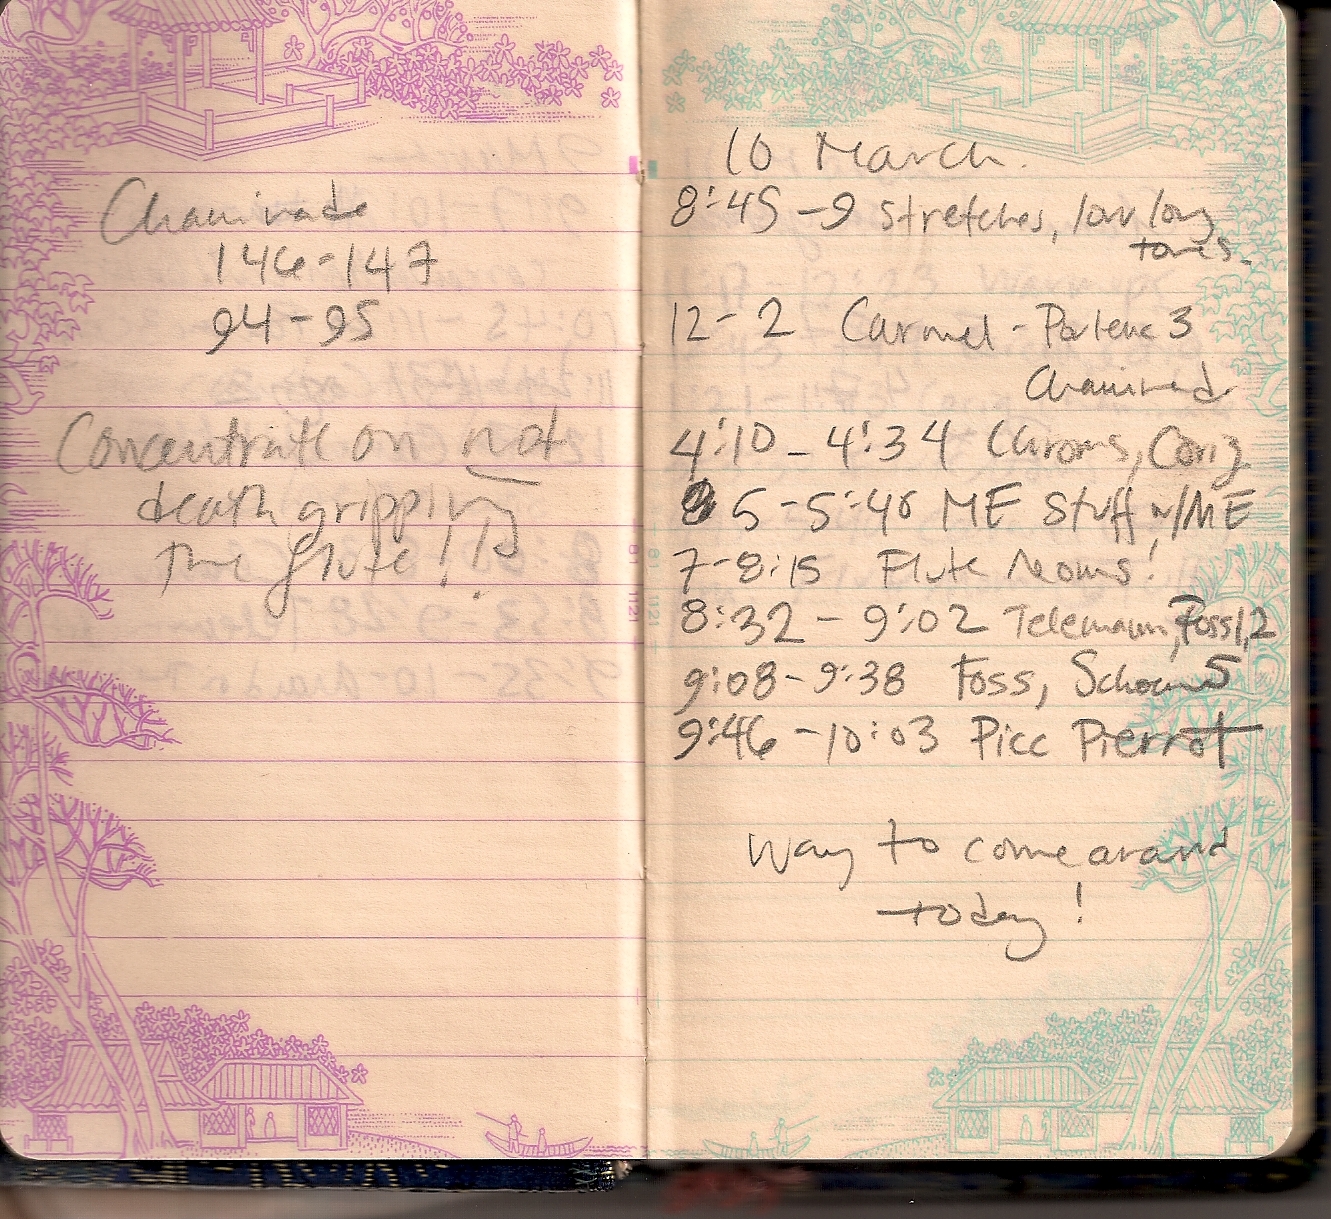 Chaminade
146-147
94-95
Concentrate on not
death gripping
the flute!!
10 March.
8:45-9 stretches, low long
tones.
12-2 Carmel - Poulenc 3
Chaminade
4:10-4:34 Chroms, Corig.
5-5:40 ME Stuff w/ME
7-8:15 Flute Neoms!
8:32-9:02 Telemann, Foss 1,2
9:08-9:38 Foss, Schocker 5
9:46-10:03 Picc Pierrot
Way to come around
today!